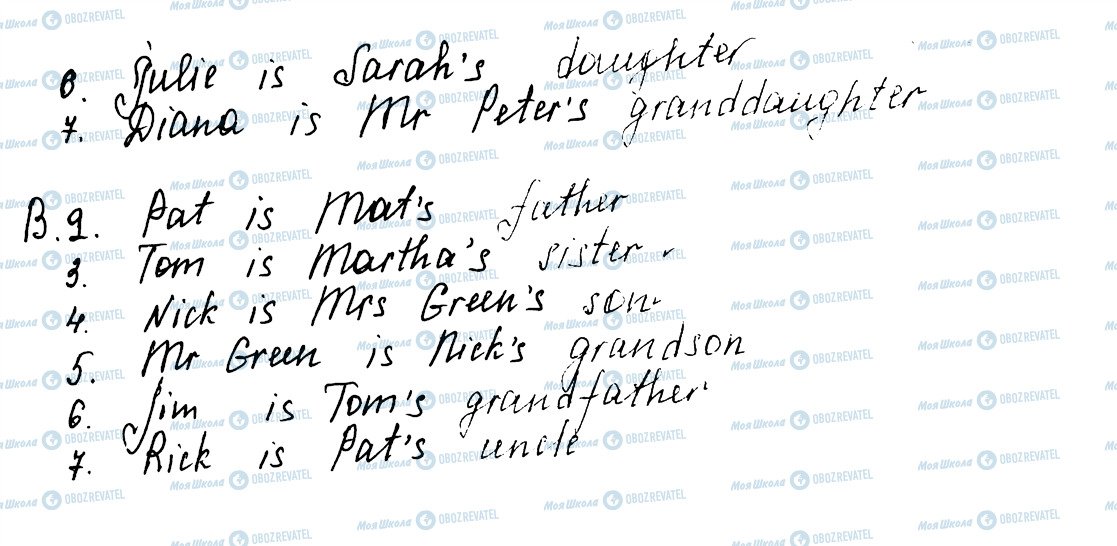 6. Julie is Sarah's daughter
7. Diana is Mr Peter's granddaughter
B.2. Pat is Mat's father
3. Tom is Martha's sister.
4. Nick is Mrs Green's son.
5. Mr Green is Nick's grandson
6. Jim is Tom's grandfather
7. Rick is Pat's uncle
Моя Школа OBOZREVATEL